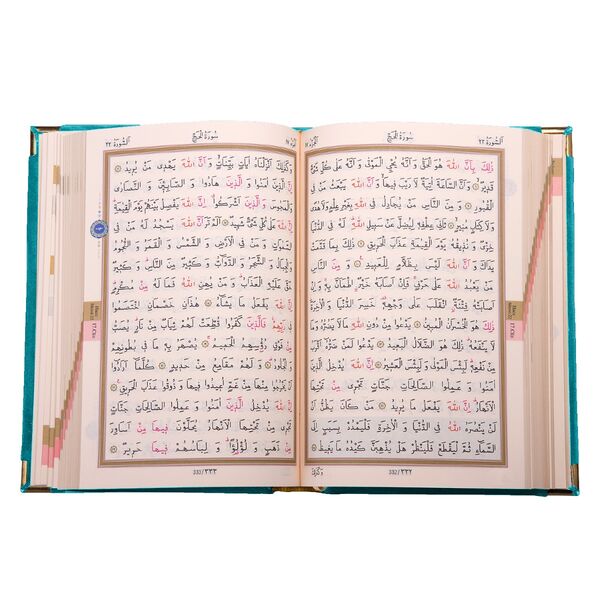 اَلسُّورَةُ ٢٢
سُورَةُ الْحَجِّ
ذٰلِكَ بِاَنَّ اللّٰهَ هُوَ الْحَقُّ وَ اَنَّهُ يُحْيِي الْمَوْتٰى وَ اَنَّهُ عَلٰى كُلِّ شَيْءٍ
قَدِيرٌ وَ اَنَّ السَّاعَةَ اٰتِيَةٌ لَا رَيْبَ فِيهَا وَ اَنَّ اللّٰهَ يَبْعَثُ مَنْ فِي
الْقُبُورِ وَ مِنَ النَّاسِ مَنْ يُجَادِلُ فِي اللّٰهِ بِغَيْرِ عِلْمٍ وَ لَا هُدًى
وَ لَا كِتَابٍ مُنِيرٍ ثَانِيَ عِطْفِهِ لِيُضِلَّ عَنْ سَبِيلِ اللّٰهِ لَهُ فِي الدُّنْيَا
خِزْيٌ وَ نُذِيقُهُ يَوْمَ الْقِيٰمَةِ عَذَابَ الْحَرِيقِ ذٰلِكَ بِمَا قَدَّمَتْ
يَدَاكَ وَ اَنَّ اللّٰهَ لَيْسَ بِظَلَّامٍ لِلْعَبِيدِ وَ مِنَ النَّاسِ مَنْ
يَعْبُدُ اللّٰهَ عَلٰى حَرْفٍ فَاِنْ اَصَابَهُ خَيْرٌ اطْمَاَنَّ بِهِ وَ اِنْ
اَصَابَتْهُ فِتْنَةٌ انْقَلَبَ عَلٰى وَجْهِهِ خَسِرَ الدُّنْيَا وَ الْاٰخِرَةَ
ذٰلِكَ هُوَ الْخُسْرَانُ الْمُبِينُ يَدْعُوا مِنْ دُونِ اللّٰهِ مَا لَا يَضُرُّهُ وَ مَا
لَا يَنْفَعُهُ ذٰلِكَ هُوَ الضَّلَالُ الْبَعِيدُ يَدْعُوا لَمَنْ ضَرُّهُ اَقْرَبُ
مِنْ نَفْعِهِ لَبِئْسَ الْمَوْلٰى وَ لَبِئْسَ الْعَشِيرُ اِنَّ اللّٰهَ يُدْخِلُ
الَّذِينَ اٰمَنُوا وَ عَمِلُوا الصَّالِحَاتِ جَنَّاتٍ تَجْرِي مِنْ تَحْتِهَا
الْاَنْهَارُ اِنَّ اللّٰهَ يَفْعَلُ مَا يُرِيدُ مَنْ كَانَ يَظُنُّ اَنْ لَنْ
يَنْصُرَهُ اللّٰهُ فِي الدُّنْيَا وَ الْاٰخِرَةِ فَلْيَمْدُدْ بِسَبَبٍ اِلَى
السَّمَاءِ ثُمَّ لْيَقْطَعْ فَلْيَنْظُرْ هَلْ يُذْهِبَنَّ كَيْدُهُ مَا يَغِيظُ
332/٣٣٢
وَكَذٰلِكَ
17.Cüz
سُورَةُ الْحَجِّ
اَلسُّورَةُ ٢٢
وَ كَذٰلِكَ اَنْزَلْنَاهُ اٰيَاتٍ بَيِّنَاتٍ وَ اَنَّ اللّٰهَ يَهْدِي مَنْ يُرِيدُ
اِنَّ الَّذِينَ اٰمَنُوا وَ الَّذِينَ هَادُوا وَ الصَّابِـِٔينَ وَ النَّصَارٰى
وَ الْمَجُوسَ وَ الَّذِينَ اَشْرَكُوا اِنَّ اللّٰهَ يَفْصِلُ بَيْنَهُمْ يَوْمَ الْقِيٰمَةِ
اِنَّ اللّٰهَ عَلٰى كُلِّ شَيْءٍ شَهِيدٌ اَلَمْ تَرَ اَنَّ اللّٰهَ يَسْجُدُ لَهُ مَنْ فِي
السَّمٰوَاتِ وَ مَنْ فِي الْاَرْضِ وَ الشَّمْسُ وَ الْقَمَرُ وَ النُّجُومُ
وَ الْجِبَالُ وَ الشَّجَرُ وَ الدَّوَابُّ وَ كَثِيرٌ مِنَ النَّاسِ وَ كَثِيرٌ
حَقَّ عَلَيْهِ الْعَذَابُ وَ مَنْ يُهِنِ اللّٰهُ فَمَا لَهُ مِنْ مُكْرِمٍ
اِنَّ اللّٰهَ يَفْعَلُ مَا يَشَاءُ هٰذَانِ خَصْمَانِ اخْتَصَمُوا
فِي رَبِّهِمْ فَالَّذِينَ كَفَرُوا قُطِّعَتْ لَهُمْ ثِيَابٌ مِنْ نَارٍ يُصَبُّ
مِنْ فَوْقِ رُؤُسِهِمُ الْحَمِيمُ يُصْهَرُ بِهِ مَا فِي بُطُونِهِمْ
وَ الْجُلُودُ وَ لَهُمْ مَقَامِعُ مِنْ حَدِيدٍ كُلَّمَا اَرَادُوا اَنْ
يَخْرُجُوا مِنْهَا مِنْ غَمٍّ اُعِيدُوا فِيهَا وَ ذُوقُوا عَذَابَ الْحَرِيقِ
اِنَّ اللّٰهَ يُدْخِلُ الَّذِينَ اٰمَنُوا وَ عَمِلُوا الصَّالِحَاتِ جَنَّاتٍ
تَجْرِي مِنْ تَحْتِهَا الْاَنْهَارُ يُحَلَّوْنَ فِيهَا مِنْ اَسَاوِرَ
مِنْ ذَهَبٍ وَ لُؤْلُؤًا وَ لِبَاسُهُمْ فِيهَا حَرِيرٌ
333/٣٣٣